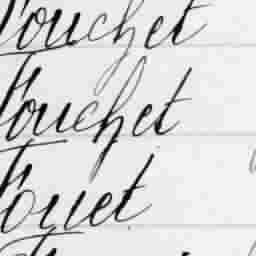 Touchet
Touchet
Touet